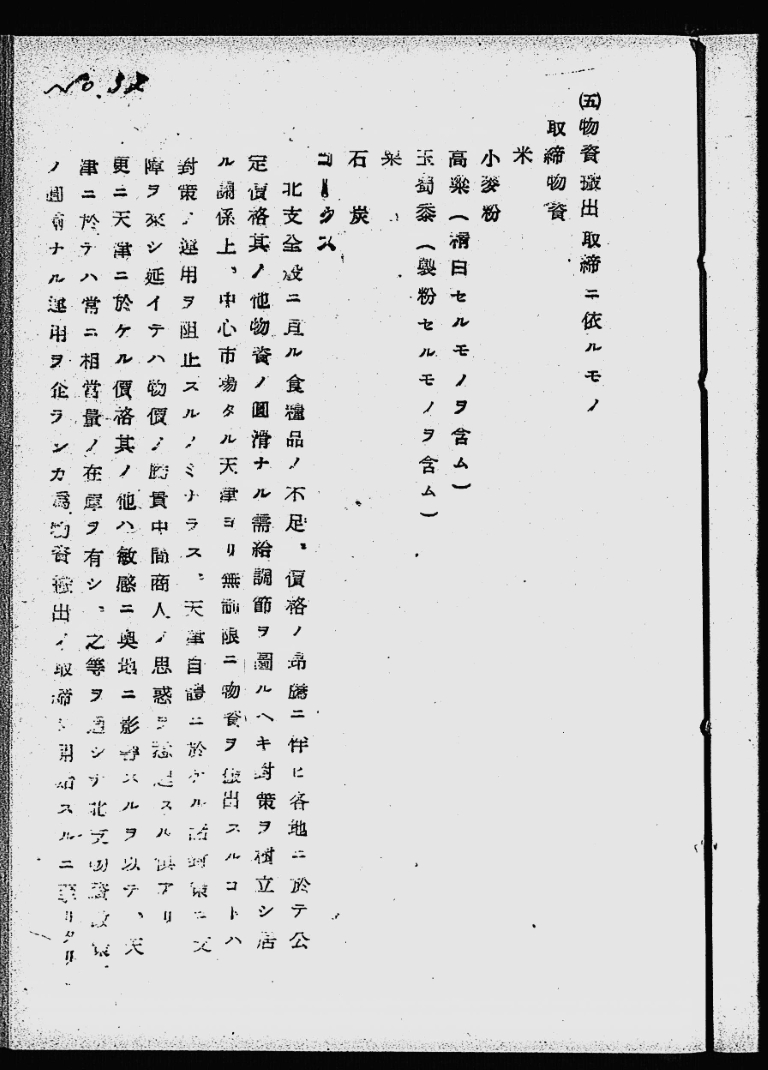 No. 32
㈤物資搬出取締ニ依ルモノ
取締物資
米
小麥粉
高粱（精白セルモノヲ含ム）
玉蜀黍（製粉セルモノヲ含ム）
粟
石炭
コークス
北支全般ニ亘ル食糧品ノ不足、價格ノ昂騰ニ伴ヒ各地ニ於テ公
定價格其ノ他物資ノ圓滑ナル需給調節ヲ圖ルヘキ對策ヲ樹立シ居
ル關係上、中心市場タル天津ヨリ無制限ニ物資ヲ搬出スルコトハ
對策ノ運用ヲ阻止スルノミナラス、天津自體ニ於ケル諸對策ニ支
障ヲ來シ延イテハ物價ノ騰貴中間商人ノ思惑ヲ惹起スル惧アリ
更ニ天津ニ於ケル價格其ノ他ハ敏感ニ奧地ニ影響スルヲ以テ、天
津ニ於テハ常ニ相當量ノ在庫ヲ有シ、之等ヲ通シテ北支物資對策
ノ圓滑ナル運用ヲ企ランカ爲物資搬出ノ取締ヲ開始スルニ至リタリ